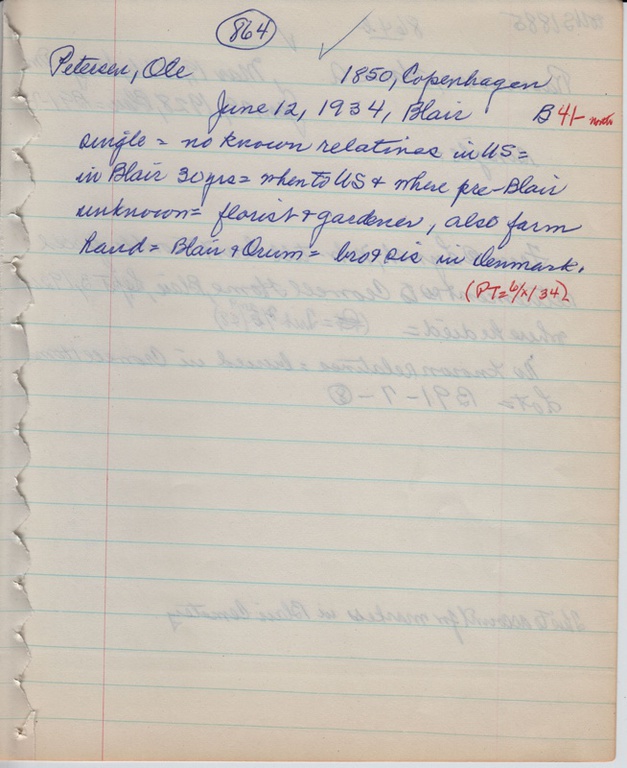 864
Petersen, Ole 1850, Copenhagen
June 12, 1934, Blair B 41- north
single = no known relatives in US =
in Blair 30 yrs = when to US & where pre-Blair
unknown = florist & gardener, also farm
hand = Blair & Orum = bro & sis in Denmark.
(PT = 6/ /34)